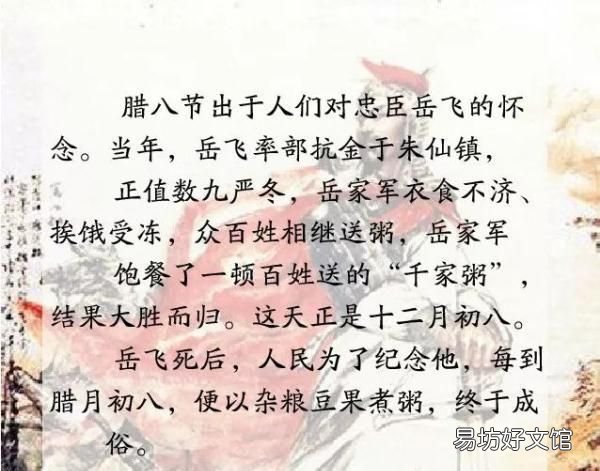 腊八节出于人们对忠臣岳飞的怀
念。当年，岳飞率部抗金于朱仙镇，
正值数九严冬，岳家军衣食不济、
挨饿受冻，众百姓相继送粥，岳家军
饱餐了一顿百姓送的“千家粥”，
结果大胜而归。这天正是十二月初八。
岳飞死后，人民为了纪念他，每到
腊月初八，便以杂粮豆果煮粥，终于成
俗。
易坊好文馆